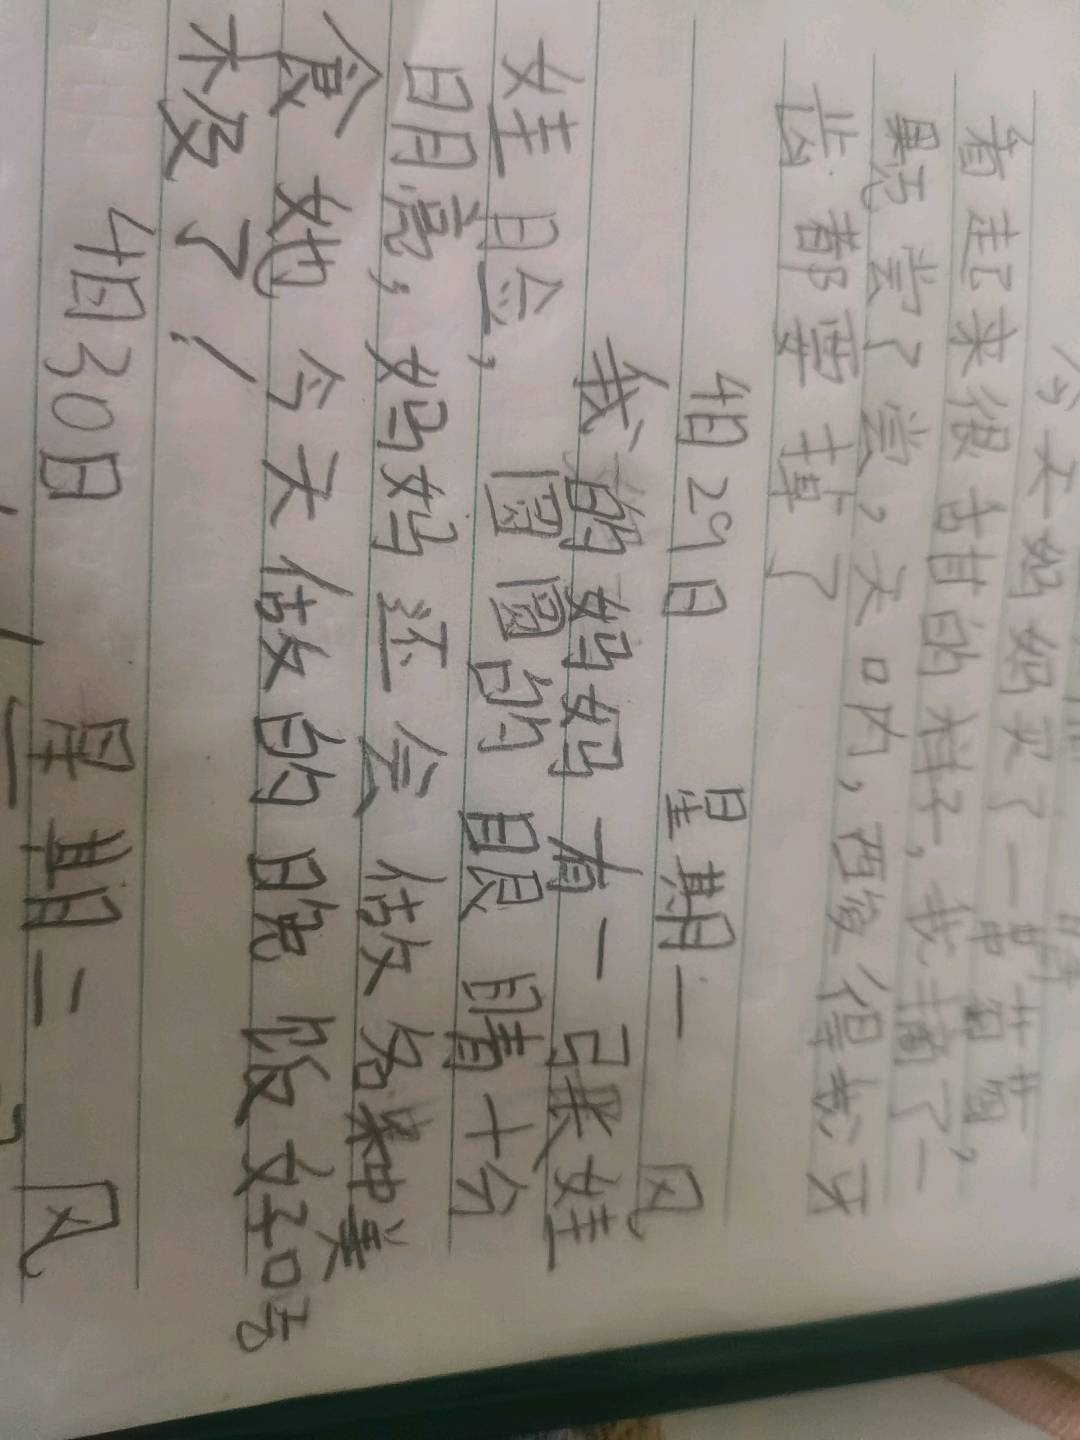 今天妈妈买了一串葡萄,
看起来很甜的样子,我摘了一
颗尝了尝,天口内,酉得我牙
齿都要掉了
4月29日 星期一 风
我的妈妈有一张娃
娃脸,圆圆的眼睛十分
明亮,妈妈还会做各种美
食她今天做的晚饭好吃
不及了!
4月30日 星期二 风